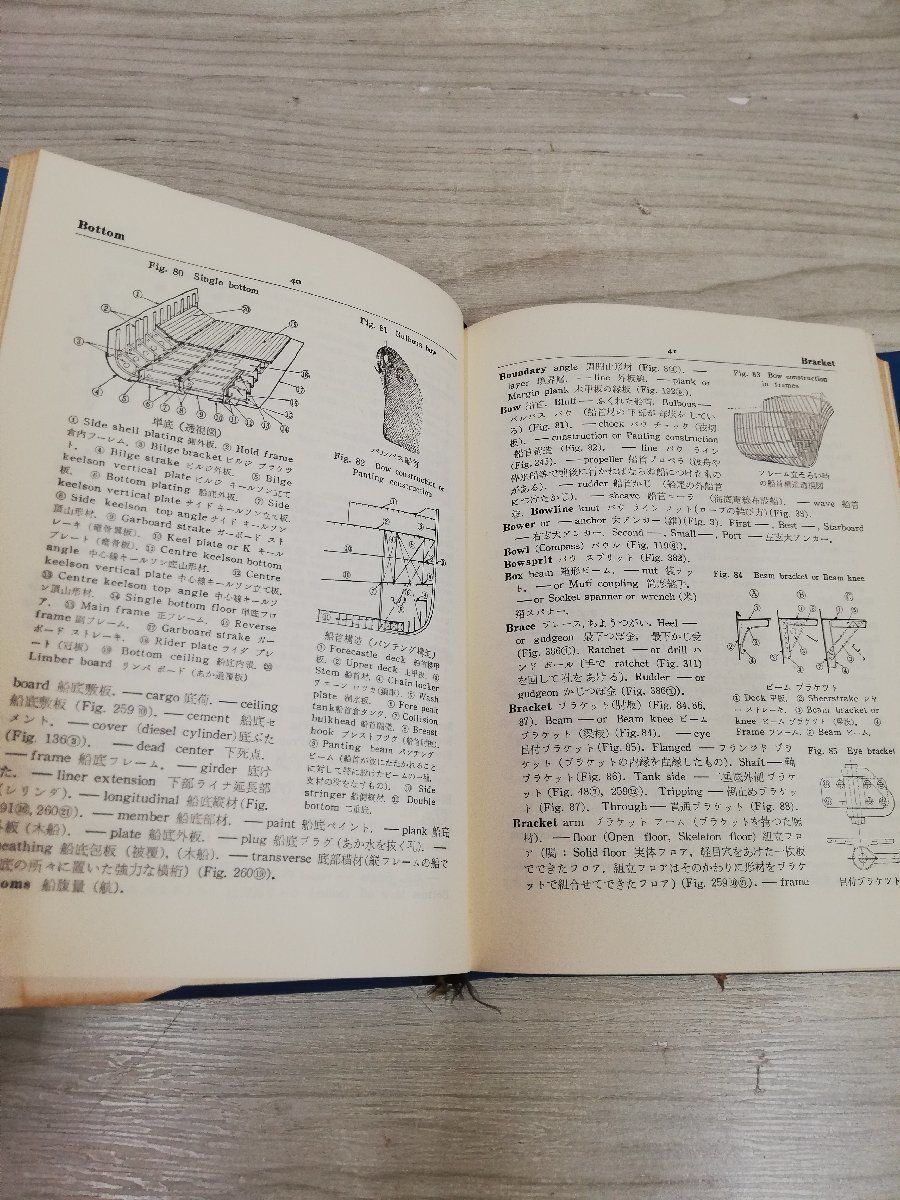 Bottom
40
Fig. 80 Single bottom
単底(透視図)
① Side shell plating 側外板. ② Hold frame
倉内フレーム. ③ Bilge bracket ビルジ ブラケッ
ト. ④ Bilge strake ビルジ外板. ⑤ Bilge
keelson vertical plate ビルジ キールソン立て
板. ⑥ Bottom plating 船底外板. ⑦ Side
keelson vertical plate サイド キールソン立て板.
⑧ Side keelson top angle サイド キールソン
頂山形材. ⑨ Garboard strake ガーボード スト
レーキ(竜骨翼板). ⑩ Keel plate or K キール
プレート(竜骨板). ⑪ Centre keelson bottom
angle 中心線キールソン底山形材. ⑫ Centre
keelson vertical plate 中心線キールソン立て板.
⑬ Centre keelson top angle 中心線キールソ
ン頂山形材. ⑭ Single bottom floor 単底フロ
ア. ⑮ Main frame 正フレーム. ⑯ Reverse
frame 副フレーム. ⑰ Garboard strake ガー
ボード ストレーキ. ⑱ Rider plate ライダ プレ
ート. ⑲ Bottom ceiling 船底内張. ⑳
Limber board リンバ ボード(あか道覆板)
Fig. 81 Bulbous bow
バルバス船首
Fig. 82 Bow construction or
Panting construction
船首構造(パンチング構造)
① Forecastle deck 船首楼甲
板. ② Upper deck 上甲板. ③
Stem 船首材. ④ Chain locker
チェーン ロッカ(鎖庫). ⑤ Wash
plate 制水板. ⑥ Fore peak
tank 船首倉タンク. ⑦ Collision
bulkhead 船首隔壁. ⑧ Breast
hook ブレスト フック(船首肘板).
⑨ Panting beam パンチング
ビーム(船首が波にたたかれること
に対して特に設けたビームの一種,
支材の役をなすもの). ⑩ Side
stringer 船側縦材. ⑪ Double
bottom 二重底.
board 船底敷板. — cargo 底荷. — ceiling
船底敷板 (Fig. 259⑲). — cement 船底セ
メント. — cover (diesel cylinder) 底ぶた
(Fig. 136③). — dead center 下死点.
— frame 船底フレーム. — girder 底け
た. — liner extension 下部ライナ延長部
(シリンダ). — longitudinal 船底縦材 (Fig.
— member 船底部材. — paint 船底ペイント. — plank 船底
外板(木船). — plate 船底外板. — plug 船底プラグ(あか水を抜く孔). —
eathing 船底包板(被覆),(木船). — transverse 底部横材(縦フレームの船で
底の所々に置いた強力な横桁) (Fig. 260⑲).
oms 船腹量(艇).
41
Bracket
Boundary angle 周囲山形材 (Fig. 8①). —
layer 境界層. — line 外板線. — plank or
Margin plank 木甲板の縁板
Bow 船首. Bluff — ふくれた船首. Bulbous —
バルバス バウ (船首喫の下部が球状をしてい
る) (Fig. 81). — chock バウ チョック(波切
板). — construction or Panting construction
船首構造 (Fig. 82). — line バウ ライン
(Fig. 245). — propeller 船首プロペラ(渡舟や
砕氷船等で前後に行かねばならぬ船につけたもの
がある). — rudder 船首かじ(船尾の外船首
につけたかじ). — sheave 船首シーブ(海底電線布設船). — wave 船首
波. Bowline knot バウ ライン ノット(ロープの結び方) (Fig. 33).
Bower or — anchor 大アンカー(錨) (Fig. 3). First —, Best —, Starboard
— 右舷大アンカー. Second —, Small —, Port — 左舷大アンカー.
Bowl (Compass) バウル (Fig. 119⑥).
Bowsprit バウ スプリット (Fig. 382).
Box beam 箱形ビーム. — nut 袋ナッ
ト. — or Muff coupling 筒形継手.
— or Socket spanner or wrench (米)
箱スパナー.
Brace ブレース,もようつがい. Heel —
or gudgeon 最下つぼ金, 最下かじ受
Ratchet — or drill ハ
ンド ボール(手で ratchet (Fig. 311)
を回して孔をあける). Rudder — or
gudgeon かじつぼ金 (Fig. 386⑤).
Bracket ブラケット(肘板) (Fig. 84, 86,
87). Beam — or Beam knee ビーム
ブラケット(梁板) (Fig. 84). — eye
目付ブラケット (Fig. 85). Flanged — フランジド ブラ
ケット(ブラケットの内縁を直線したもの). Shaft — 軸
ブラケット (Fig. 86). Tank side — 二重底外側ブラケ
ット (Fig. 48⑦, 259⑫). Tripping — 倒止めブラケッ
ト (Fig. 87). Through — 貫通ブラケット (Fig. 88).
Bracket arm ブラケット アーム(ブラケットを持つた腕
材). — floor (Open floor, Skeleton floor) 組立フロ
ア(関:Solid floor 実体フロア,軽目穴をあけた一枚板
でできたフロア,組立フロアはそのかわりに形材をブラケッ
トで組合せてできたフロア) — frame
Fig. 83 Bow construction
in frames
フレーム立てある時
の船首構造透視図
Fig. 84 Beam bracket or Beam knee
ビーム ブラケット
① Deck 甲板. ② Sheerstrake シャ
ー ストレーキ. ③ Beam bracket or
knee ビーム ブラケット(梁板). ④
Frame フレーム. ⑤ Beam ビーム.
Fig. 85 Eye bracket
目付ブラケット